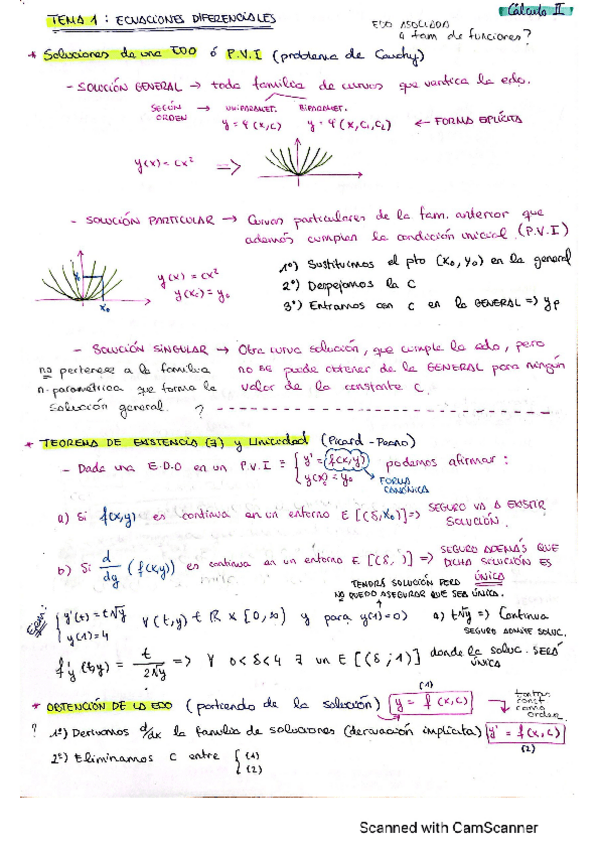 Cálculo II
TEMA 1: ECUACIONES DIFERENCIALES
EDO ASOCIADA
a fam de funciones?
* Soluciones de una EDO ó P.V.I (problema de Cauchy)
- SOLUCIÓN GENERAL → toda familia de curvas que verifica la edo.
SEGÚN ORDEN → UNIPARAMET. BIPARAMET.
y = φ(x,c) y = φ(x,c₁,c₂) ← FORMA EXPLÍCITA
y(x) = cx² =>
- SOLUCIÓN PARTICULAR → Curvas particulares de la fam. anterior que
además cumplen la condición inicial (P.V.I)
y(x) = cx²
y(x₀) = y₀
x₀
1º) Sustituimos el pto (x₀, y₀) en la general
2º) Despejamos la C
3º) Entramos con c en la GENERAL => yp
- SOLUCIÓN SINGULAR → Otra curva solución, que cumple la edo, pero
no pertenece a la familia no se puede obtener de la GENERAL para ningún
n-paramétrica que forma la valor de la constante C.
solución general. ?
* TEOREMA DE EXISTENCIA (∃) y Unicidad (Picard - Peano)
- Dada una E.D.O en un P.V.I ≡ { y' = f(x,y) podemos afirmar:
y(x) = y₀ → FORMA CANÓNICA
a) Si f(x,y) es continua en un entorno E [(δ,x₀)] => SEGURO VA A EXISTIR
SOLUCIÓN.
b) Si d/dy (f(x,y)) es continua en un entorno E [(δ, )] => SEGURO ADEMÁS QUE
DICHA SOLUCIÓN ES
ÚNICA
TENDRÁ SOLUCIÓN PERO
NO PUEDO ASEGURAR QUE SEA ÚNICA.
{ y'(t) = t√y ∀(t,y) t R x [0,∞) y para y(1)=0) a) t√y => Continua
y(1) = 4 SEGURO ADMITE SOLUC.
f'y (t,y) = t/2√y => ∀ 0<δ<4 ∃ un E [(δ;1)] donde la soluc. SERÁ
ÚNICA
* OBTENCIÓN DE LA EDO (partiendo de la solución) y = f(x,c)
(1)
const
como
orden
? 1º) Derivamos d/dx la familia de soluciones (derivación implícita) y' = f(x,c)
(2)
2º) Eliminamos C entre { (1)
(2)
Scanned with CamScanner